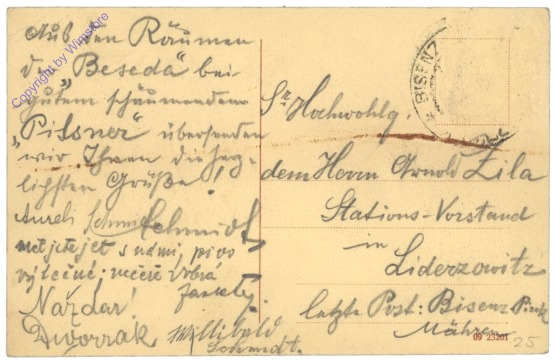 Aus den Räumen
der „Beseda“ bei
gutem schäumendem
„Pilsner“ übersenden
wir Ihnen die herz-
lichsten Grüße!
Aureli Schmidt
s námi, pivo
výtečné, večeře dobrá
Nazdar!
Dworzak
Willibald
Schmidt.
BISENZ
Sr Hochwohlg
dem Herrn Arnold Zila
Stations-Vorstand
in
Liderzowitz
letzte Post: Bisenz-Pisek
Mähren
09 23201
25
Copyright by Winstore